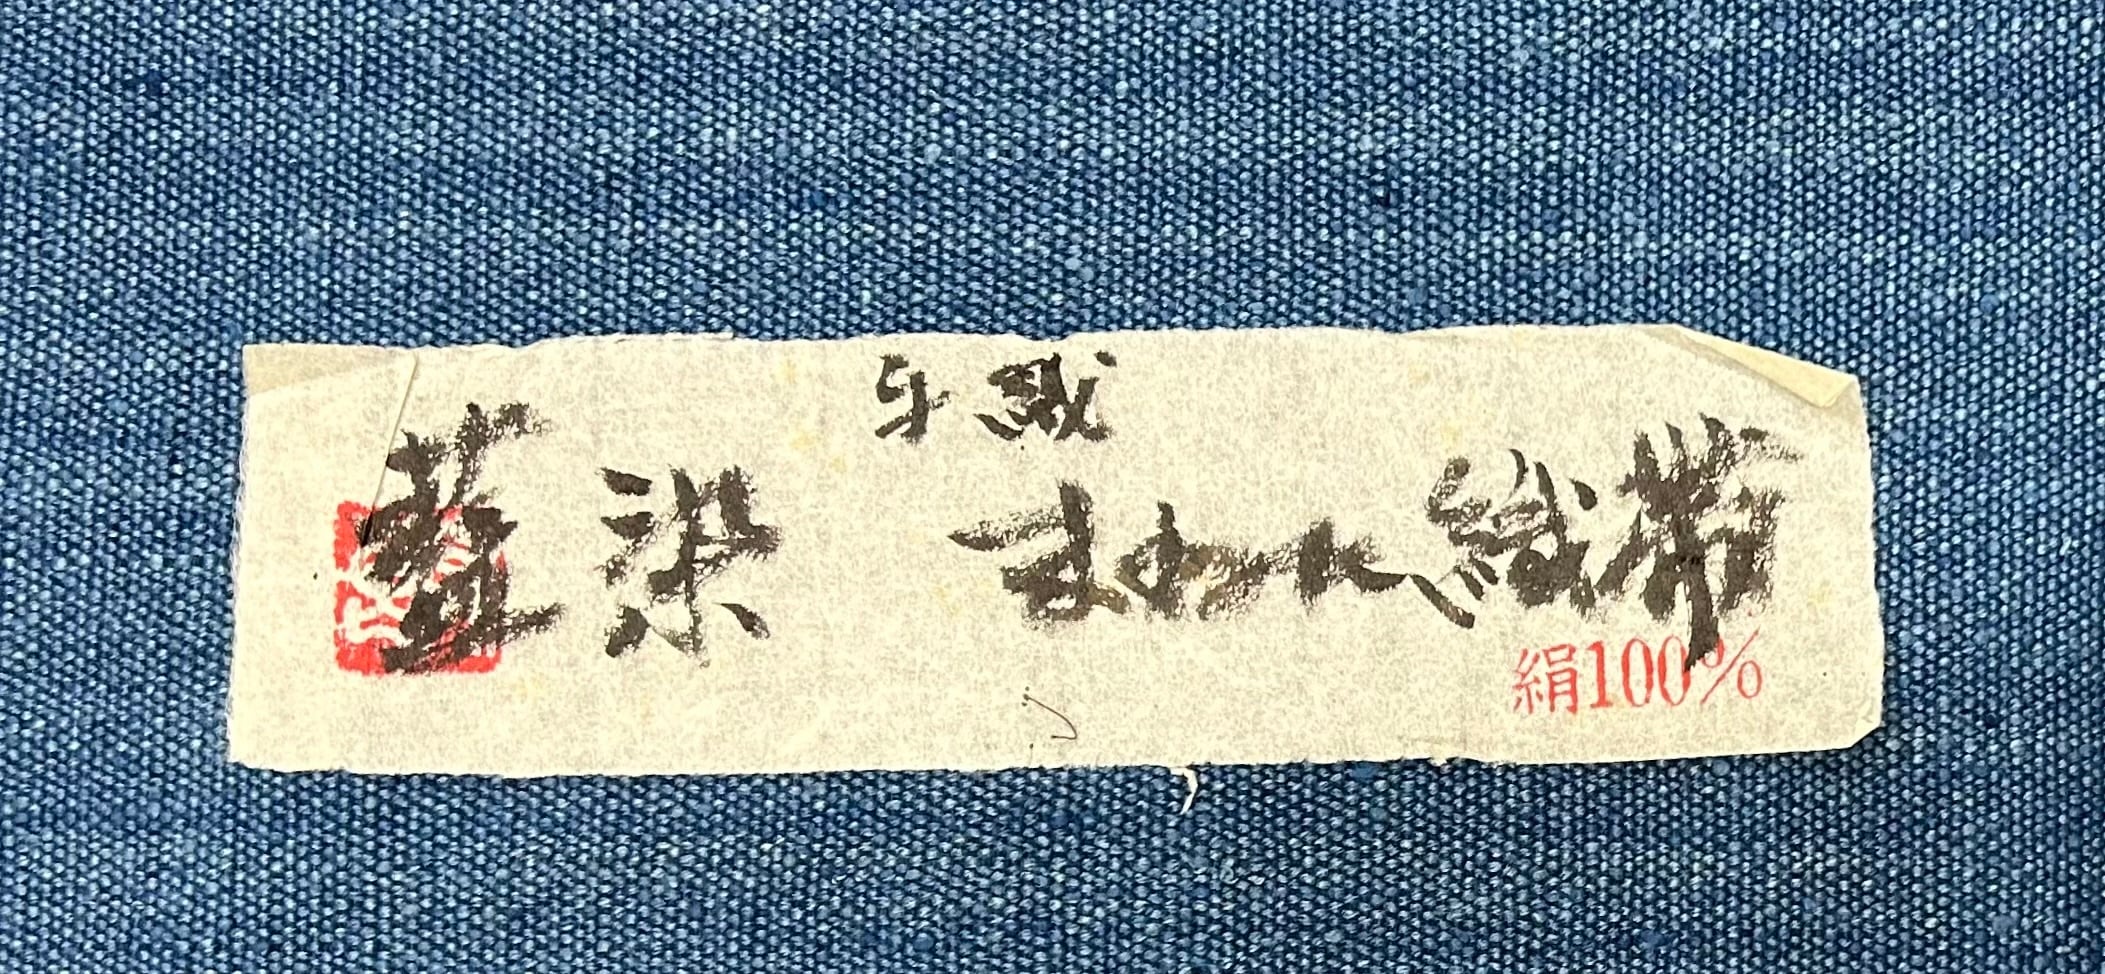 手織
藍染 まわた織帯
絹100%